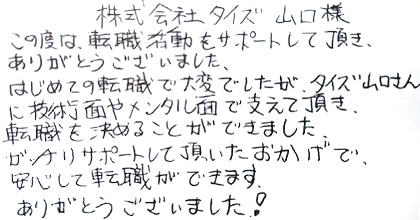 株式会社タイズ 山口様
この度は、転職活動をサポートして頂き、
ありがとうございました。
はじめての転職で大変でしたが、タイズ山口さん
に技術面やメンタル面で支えて頂き、
転職を決めることができました。
ガッチリサポートして頂いたおかげで、
安心して転職ができます。
ありがとうございました!